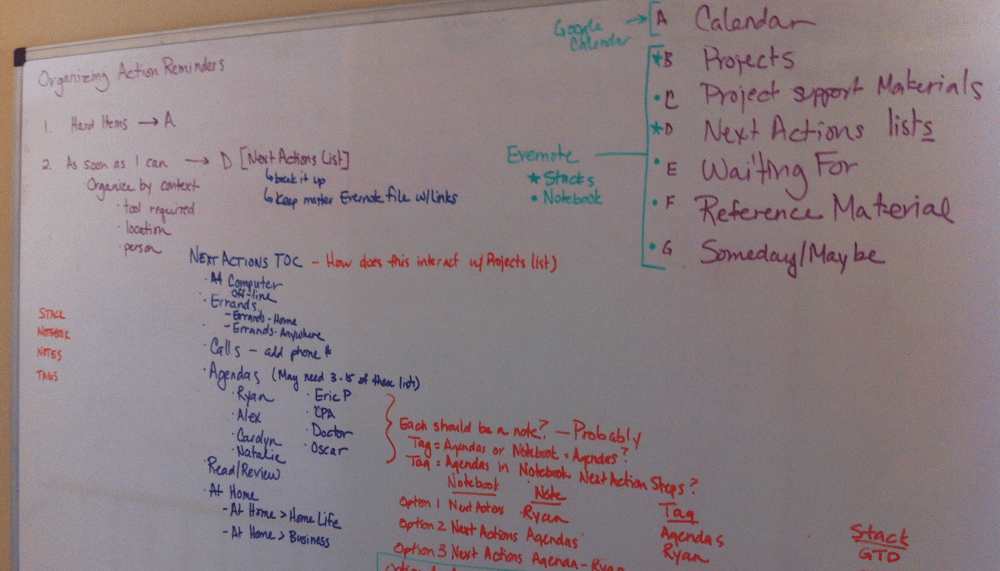 Organizing Action Reminders
1. Hard Items → A
2. As soon as I can → D [Next Actions List]
↳ break it up
↳ Keep master Evernote file w/links
· Organize by context
· tool required
· location
· person
Google Calendar → [A Calendar
★ B Projects
• C Project support Materials
★ D Next Actions lists
• E Waiting For
• F Reference Material
• G Someday/Maybe
Evernote
★ Stacks
• Notebook
STACK
NOTEBOOK
NOTES
TAGS
NEXT ACTIONS TOC - How does this interact w/ Projects list)
· At Computer
Off-line
· Errands
- Errands-Home
- Errands-Anywhere
· Calls - add phone #
· Agendas (May need 3-15 of these list)
· Ryan
· Alex
· Carolyn
· Natalie
· Eric P
· CPA
· Doctor
· Oscar
· Read/Review
· At Home
- At Home > Home Life
- At Home > Business
Each should be a note? - Probably
Tag = Agendas or Notebook = Agendas?
Tag = Agendas in Notebook Next Action Steps?
Notebook Note Tag Stack
Option 1 Next Actions Ryan Agendas GTD
Option 2 Next Actions Agendas Ryan
Option 3 Next Actions Agenda - Ryan